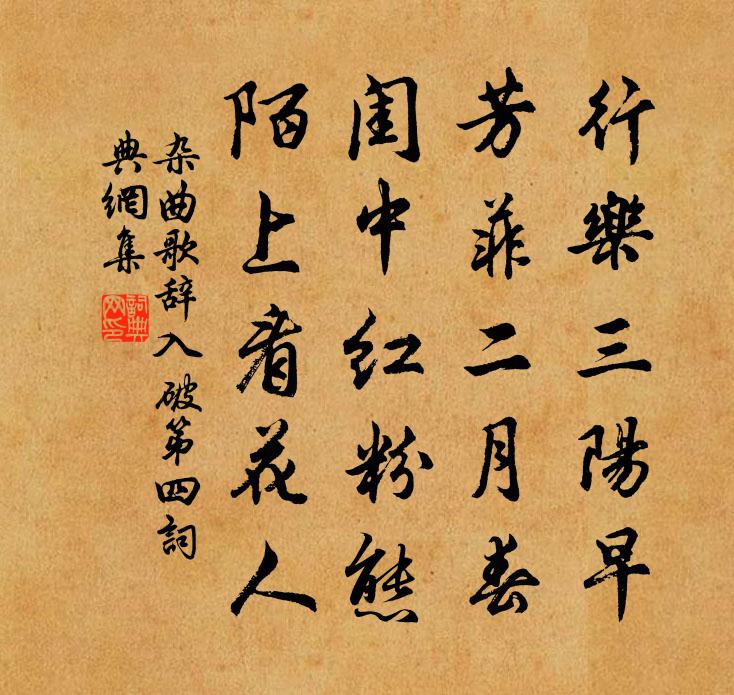 行樂三陽早
芳菲二月春
闺中红粉態
陌上看花人
杂曲歌辞入破第四詞
典網集
詞典
网印